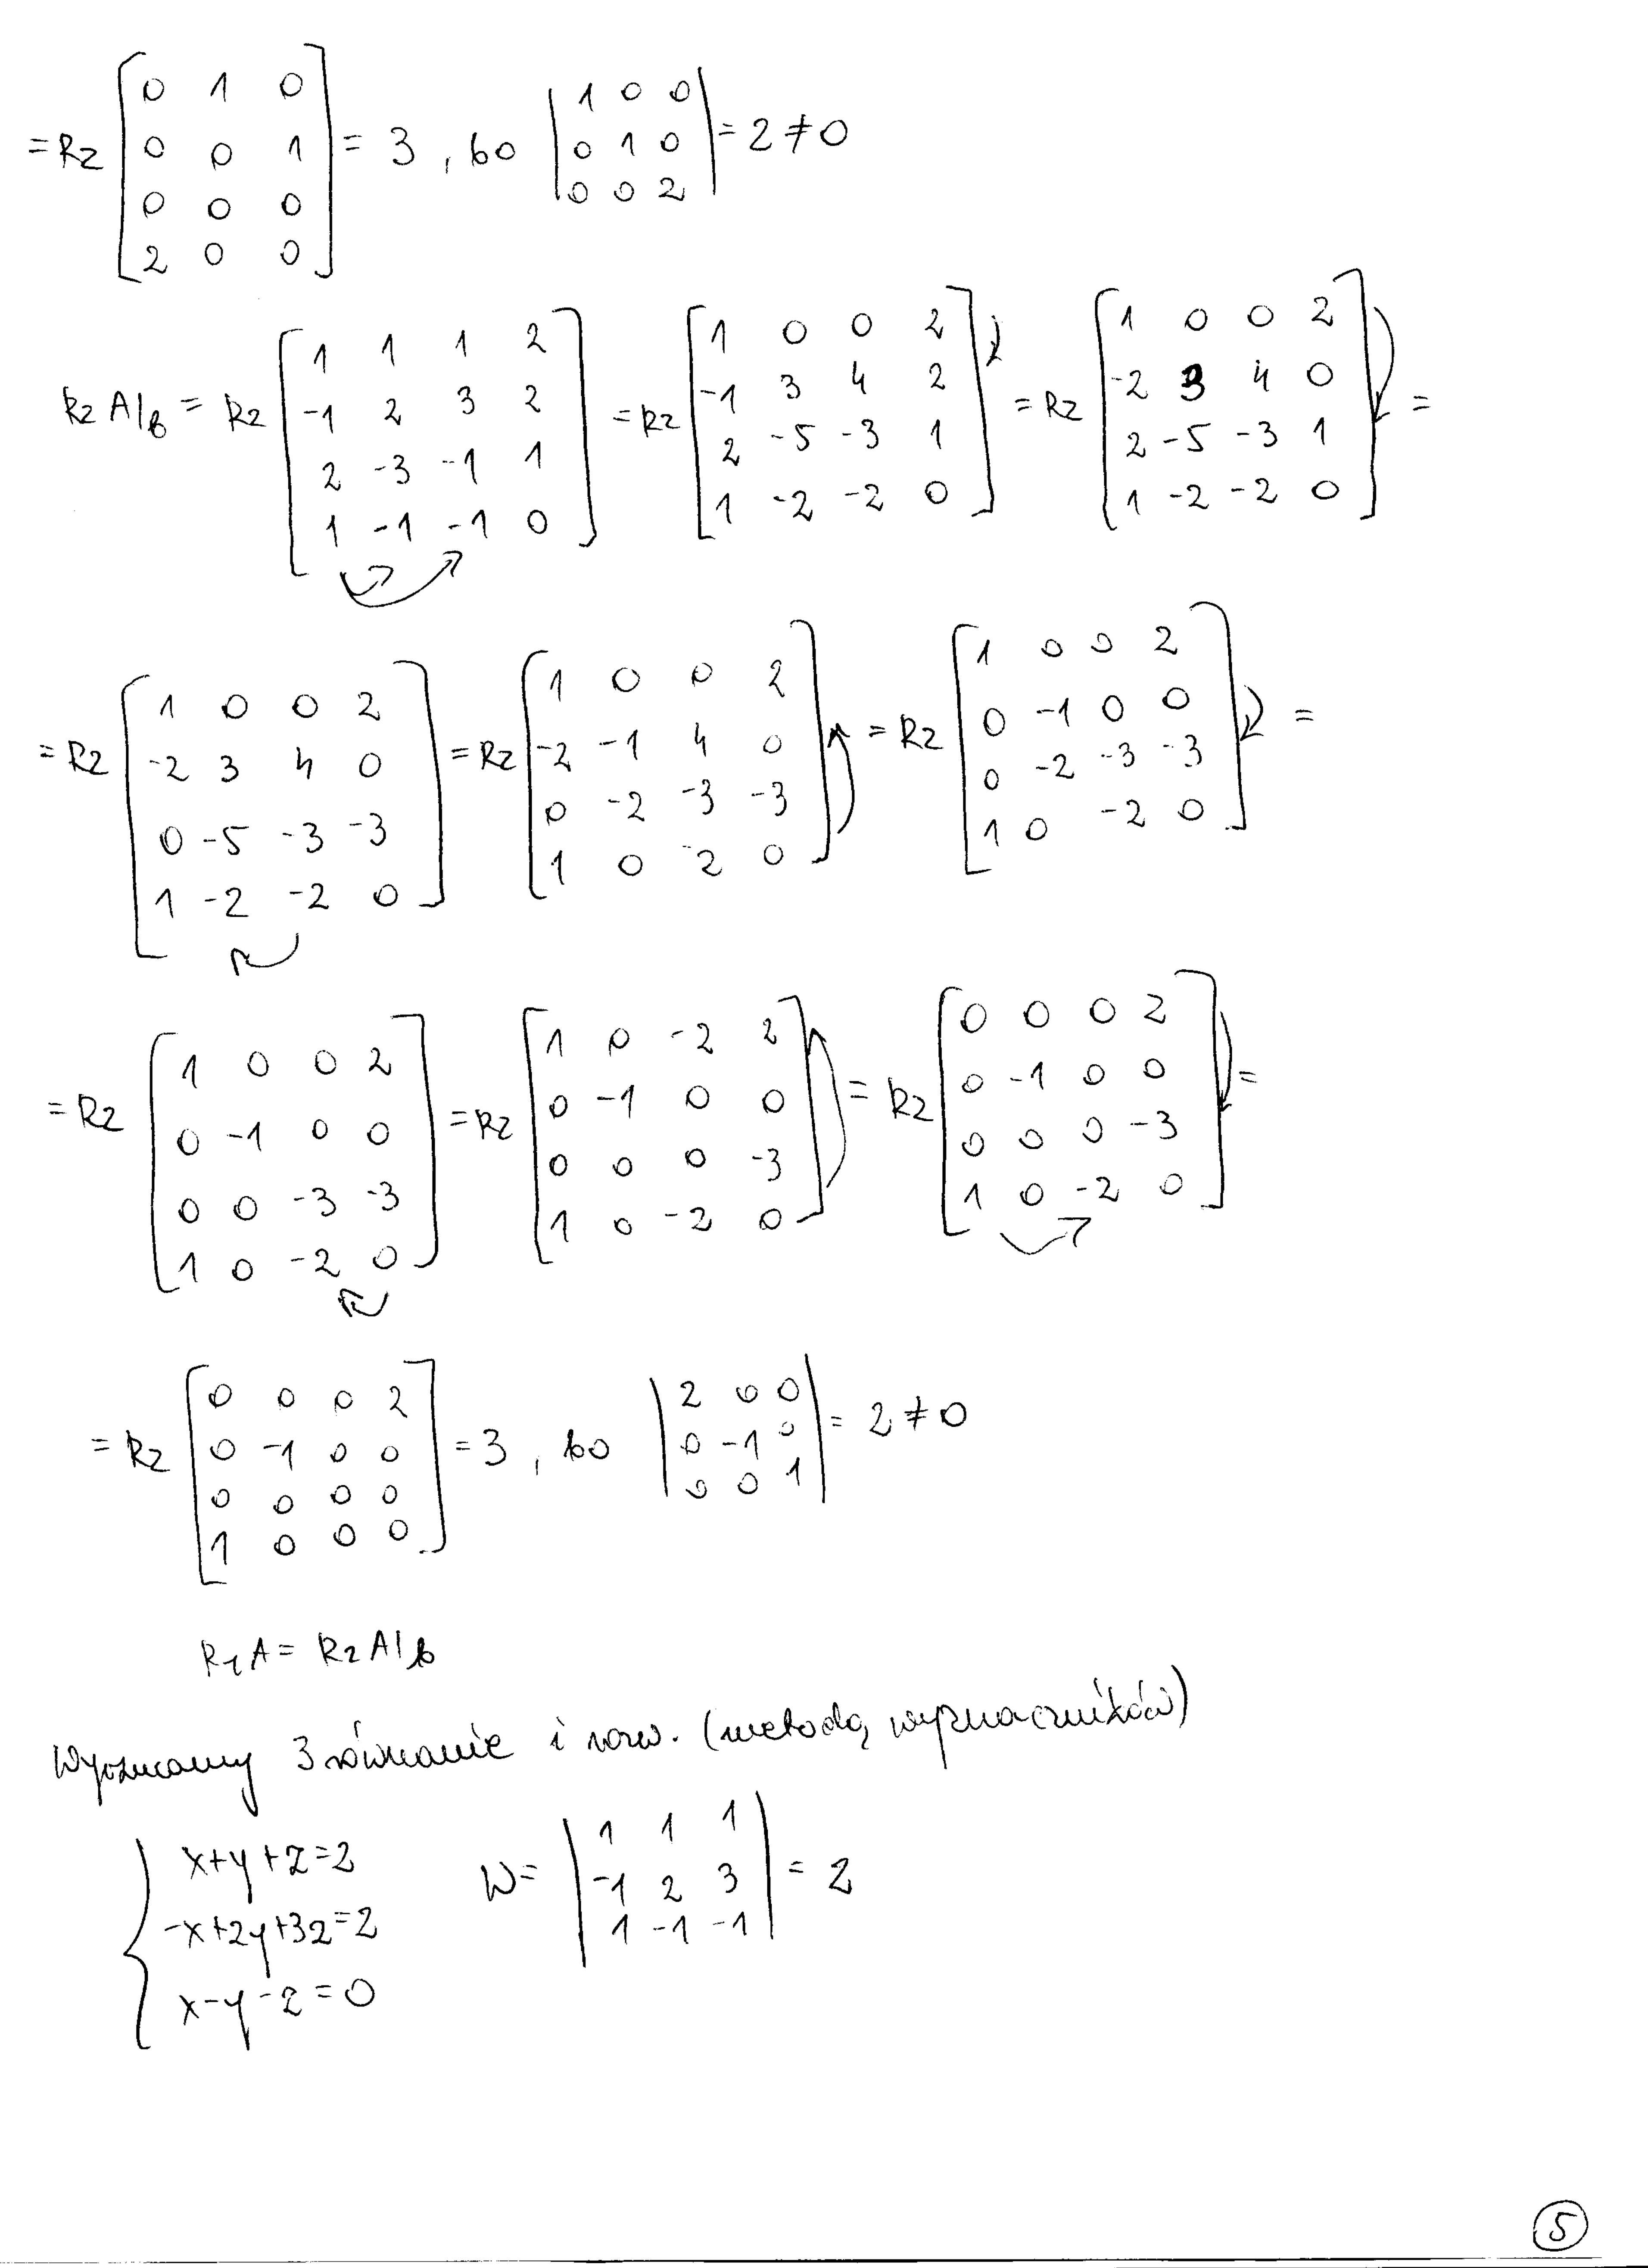 = Rz [ 0 1 0 ; 0 0 1 ; 0 0 0 ; 2 0 0 ] = 3 , bo | 1 0 0 ; 0 1 0 ; 0 0 2 | = 2 ≠ 0
Rz A|b = Rz [ 1 1 1 2 ; -1 2 3 2 ; 2 -3 -1 1 ; 1 -1 -1 0 ] = Rz [ 1 0 0 2 ; -1 3 4 2 ; 2 -5 -3 1 ; 1 -2 -2 0 ] = Rz [ 1 0 0 2 ; -2 3 4 0 ; 2 -5 -3 1 ; 1 -2 -2 0 ] =
= Rz [ 1 0 0 2 ; -2 3 4 0 ; 0 -5 -3 -3 ; 1 -2 -2 0 ] = Rz [ 1 0 0 2 ; -2 -1 4 0 ; 0 -2 -3 -3 ; 1 0 -2 0 ] = Rz [ 1 0 0 2 ; 0 -1 0 0 ; 0 -2 -3 -3 ; 1 0 -2 0 ] =
= Rz [ 1 0 0 2 ; 0 -1 0 0 ; 0 0 -3 -3 ; 1 0 -2 0 ] = Rz [ 1 0 -2 2 ; 0 -1 0 0 ; 0 0 0 -3 ; 1 0 -2 0 ] = Rz [ 0 0 0 2 ; 0 -1 0 0 ; 0 0 0 -3 ; 1 0 -2 0 ] =
= Rz [ 0 0 0 2 ; 0 -1 0 0 ; 0 0 0 0 ; 1 0 0 0 ] = 3 , bo | 2 0 0 ; 0 -1 0 ; 0 0 1 | = 2 ≠ 0
Rz A = Rz A|b
Wyrzucamy 3 równanie i rozw. (metodą wyznaczników)
x+y+z=2
-x+2y+3z=2
x-y-z=0
W= | 1 1 1 ; -1 2 3 ; 1 -1 -1 | = 2
5